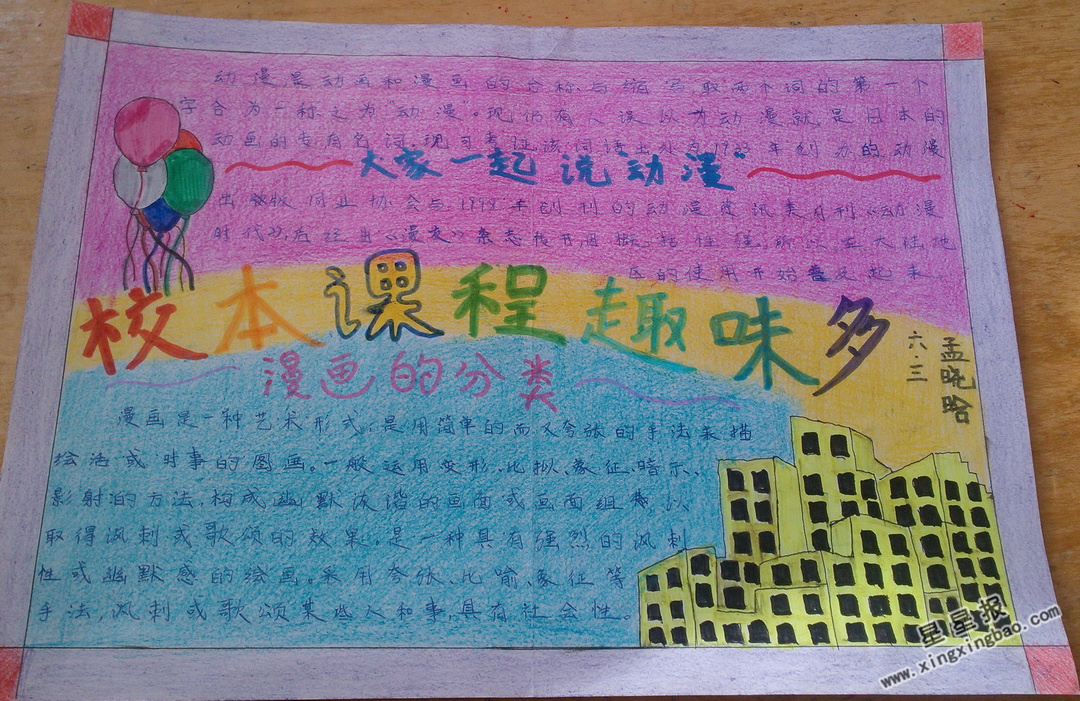 动漫是动画和漫画的合称与缩写取两个词的第一个
字合为一称之为“动漫”。现仍有人误以为动漫就是日本的
动画的专有名词,现可考证该词语出处为1993年创办的动漫
大家一起说“动漫”
出版同业协会与1998年创刊的动漫资讯类月刊《动漫
时代》,后经由《漫友》杂志传开因概括性强,所以在大陆地
区的使用开始普及起来。
校本课程趣味多
六.三
孟晓
漫画的分类
漫画是一种艺术形式,是用简单的而又夸张的手法来描
绘活或时事的图画。一般运用变形、比拟、象征、暗示、
影射的方法,构成幽默诙谐的画面或画面组 以
取得讽刺或歌颂的效果,是一种具有强烈的讽刺
性或幽默感的绘画。采用夸张、比喻、象征等
手法,讽刺或歌颂某些人和事,具有社会性。
星星报
www.xingxingbao.com